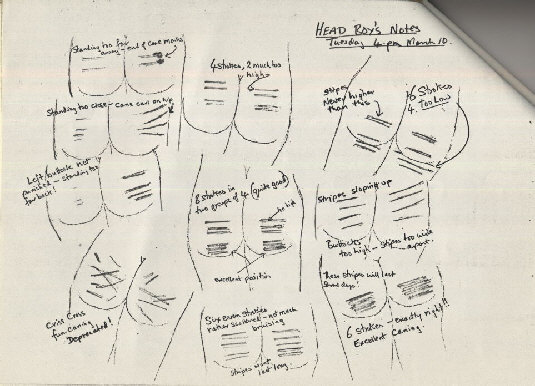 HEAD BOY'S NOTES
Tuesday 4 pm March 10.
Standing too far
away - end of cane marks
4 strokes, 2 much too
high
Stripes
Never higher
than this
6 strokes
4 Too Low
Standing too close - Cane curl on hip
Left buttock not
punished - standing too
far back!
8 strokes in
two groups of 4 (quite good)
excellent position
Stripes sloping up
Buttocks
too high - stripes too wide
apart.
Criss Cross
fun caning
Deprecated!
Six even strokes
rather scattered - not much
bruising
stripes wont
last long
These stripes will last
some days!
6 strokes - exactly right!!
Excellent Caning